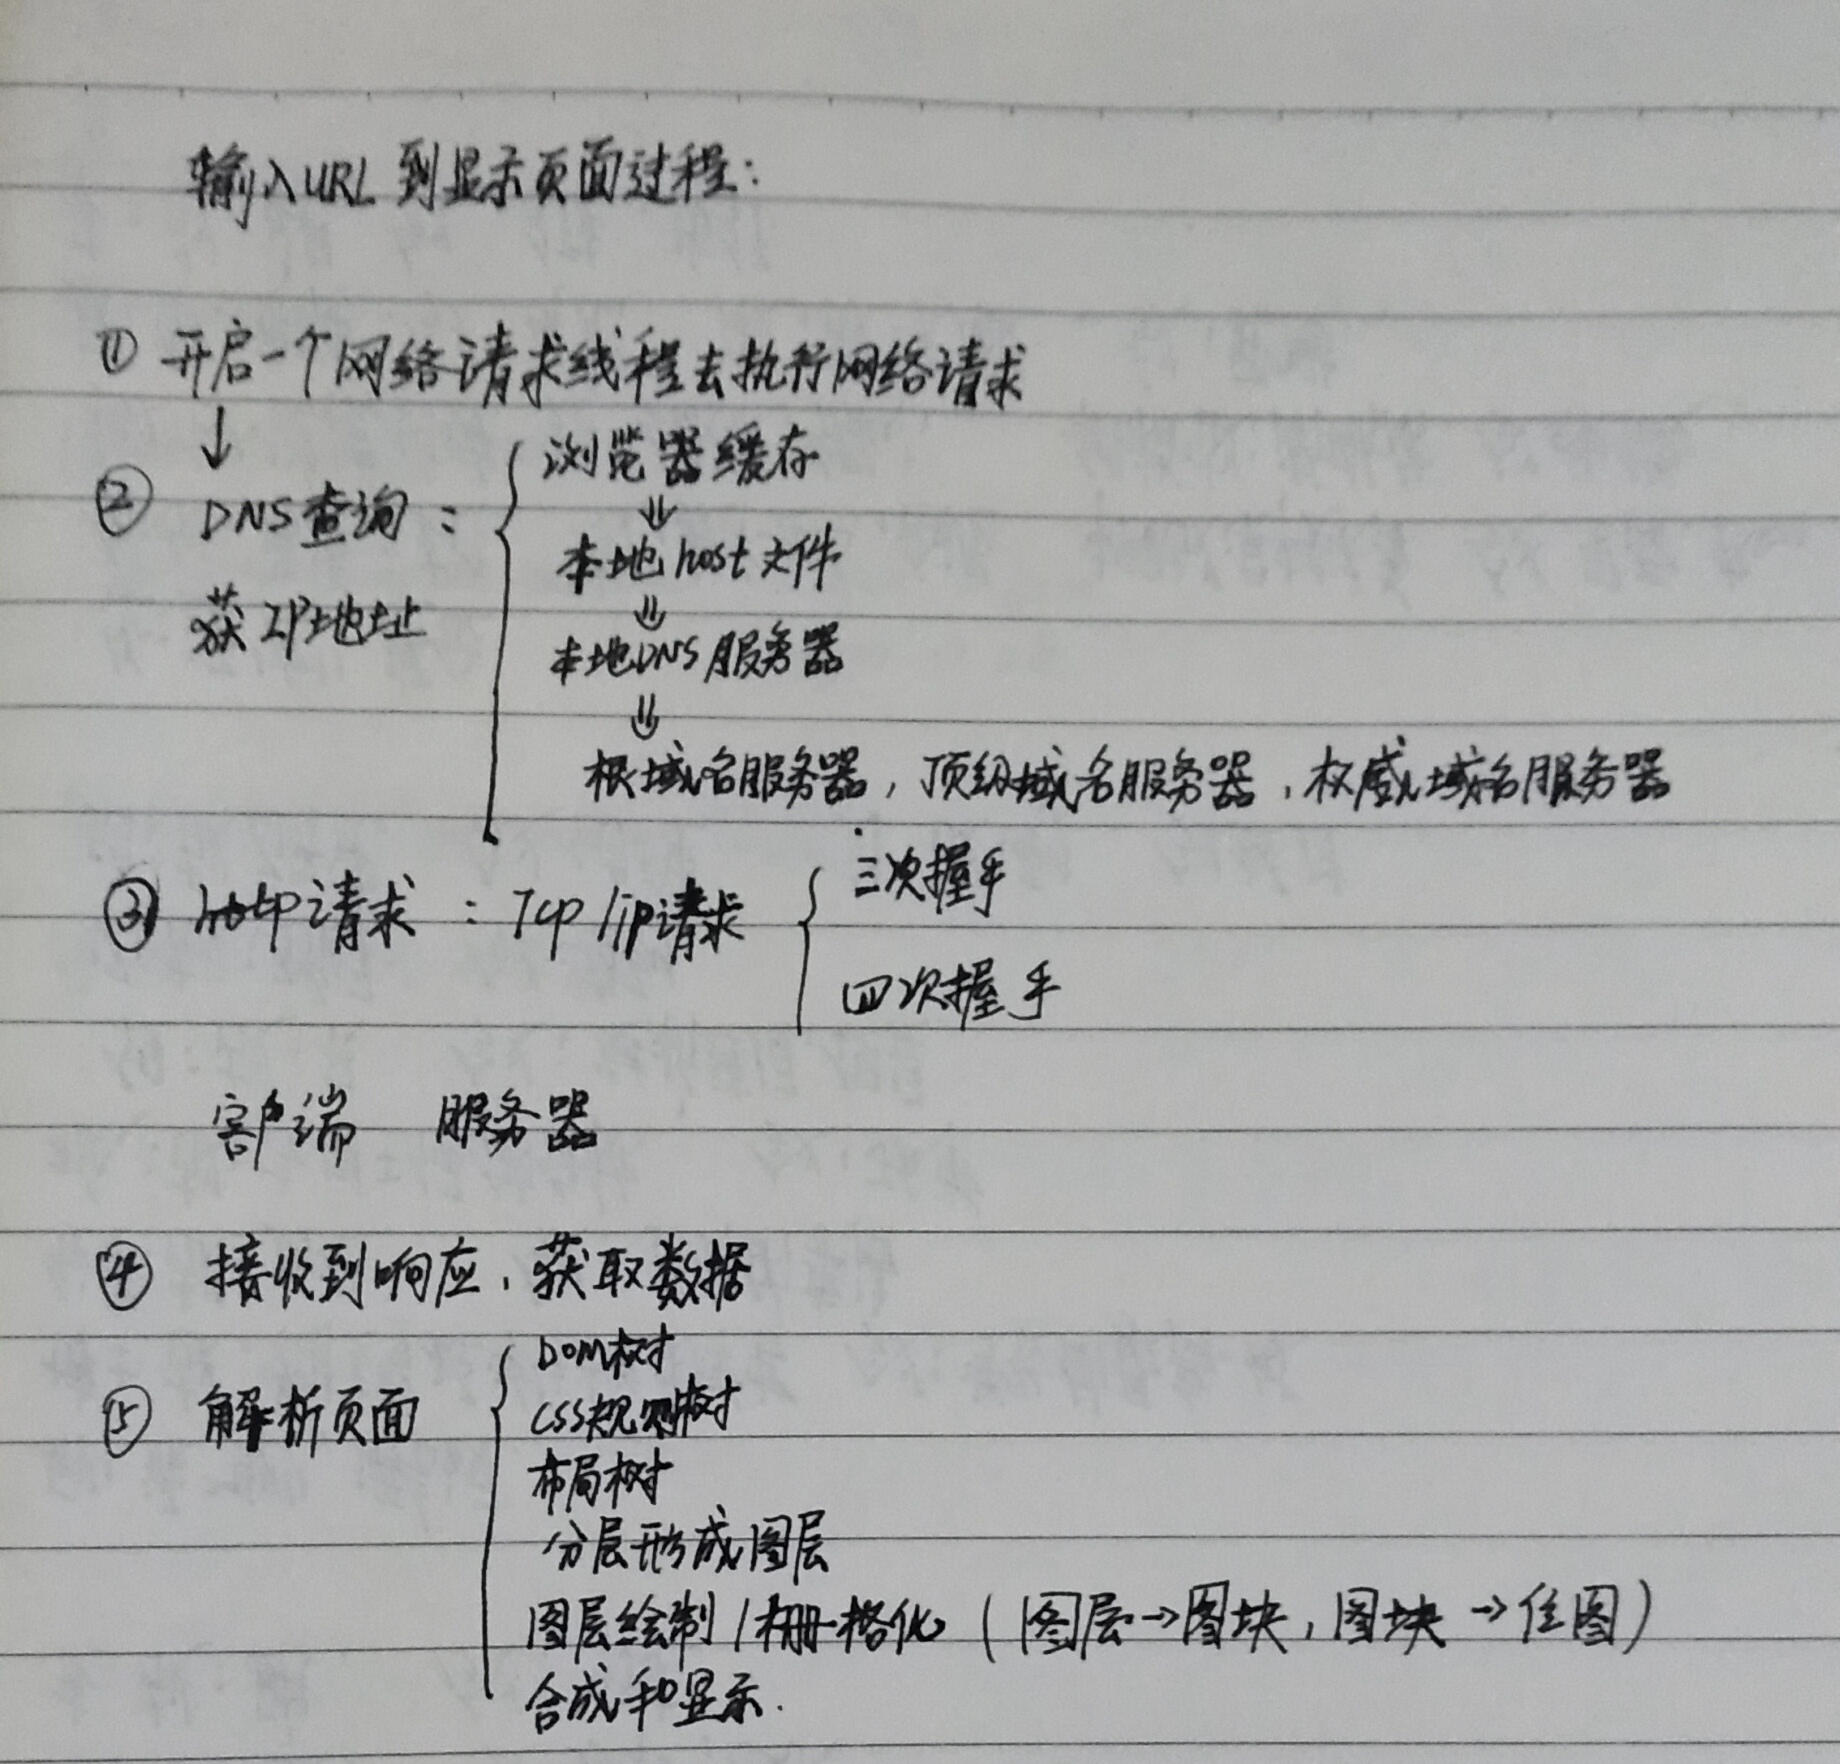 输入URL到显示页面过程:
① 开启一个网络请求线程去执行网络请求
↓
② DNS查询:
获IP地址
浏览器缓存
⇓
本地host文件
⇓
本地DNS服务器
⇓
根域名服务器,顶级域名服务器,权威域名服务器
③ http请求 : Tcp/ip请求
三次握手
四次握手
客户端 服务器
④ 接收到响应,获取数据
⑤ 解析页面
DOM树
CSS规则树
布局树
分层形成图层
图层绘制/栅格化(图层→图块,图块→位图)
合成和显示.